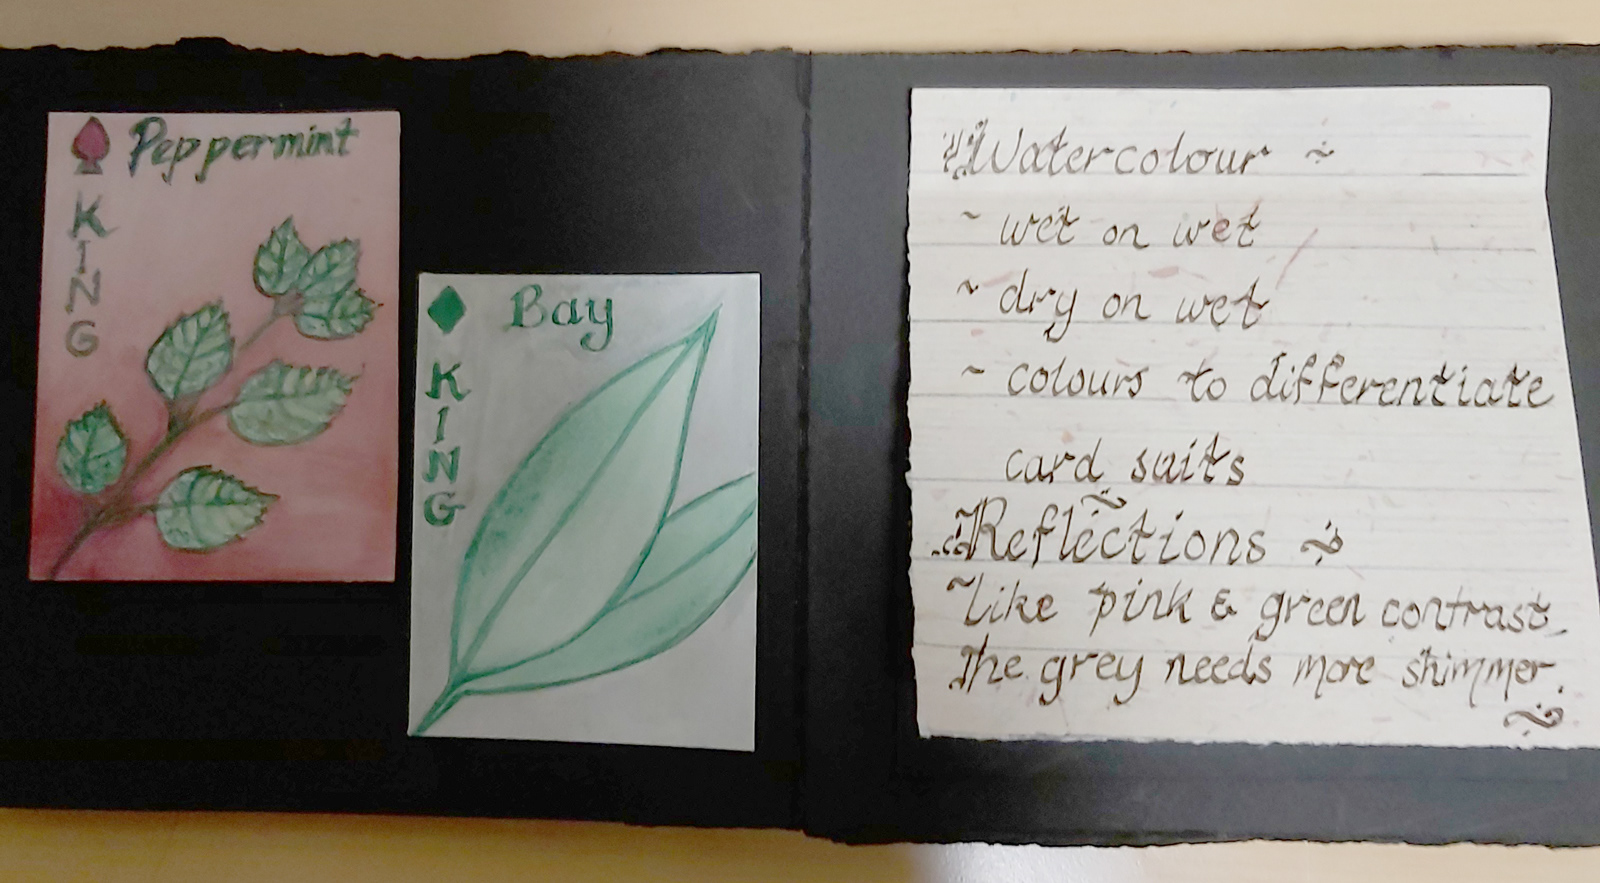 Peppermint
KING
Bay
KING
Watercolour ~
~ wet on wet
~ dry on wet
~ colours to differentiate
card suits
Reflections ~
~Like pink & green contrast.
The grey needs more shimmer.